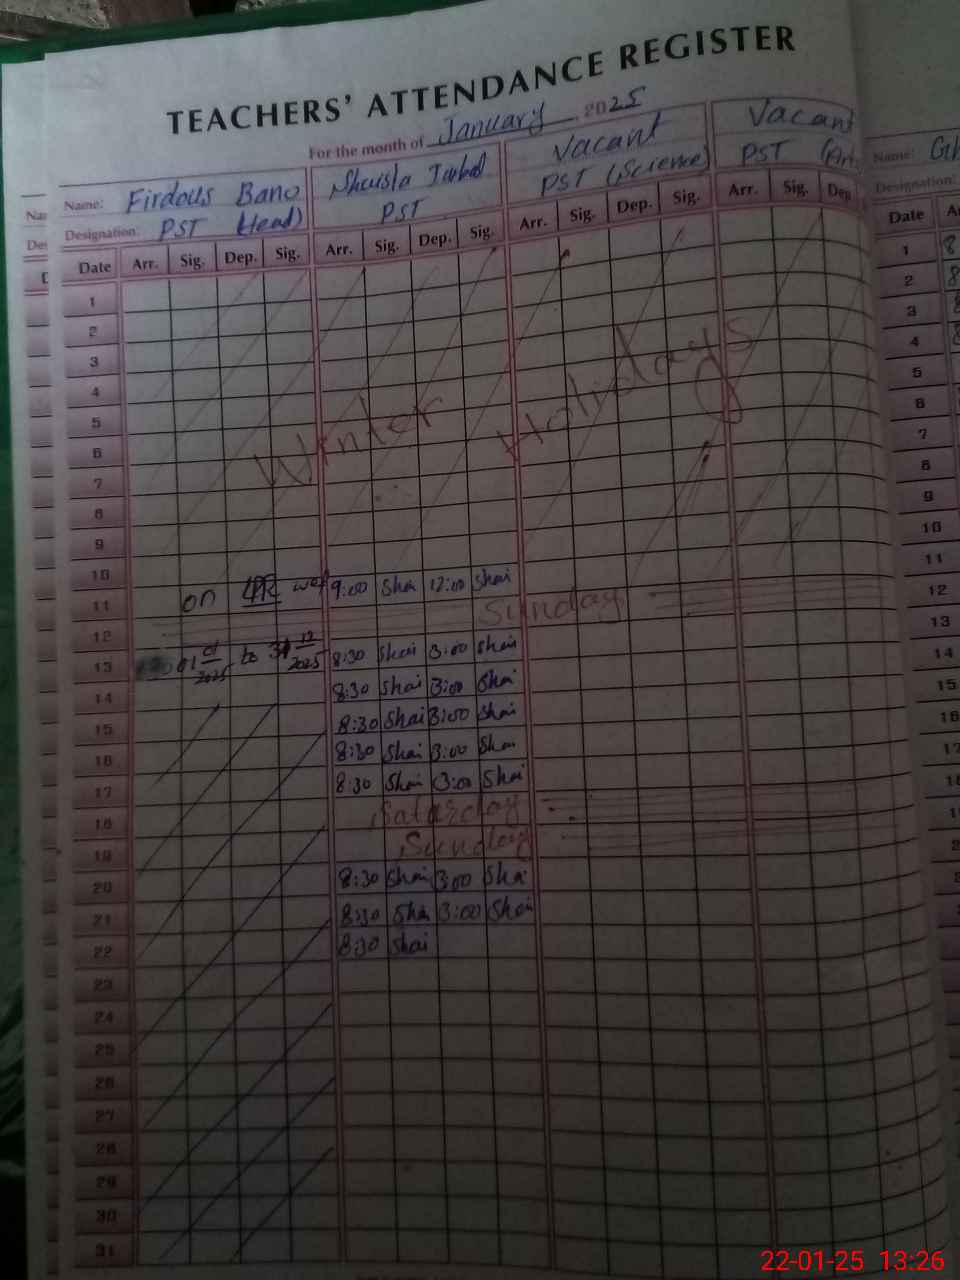 TEACHERS' ATTENDANCE REGISTER
For the month of January 2025
Name: Firdous Bano
Designation: PST (Head)
Shaista
PST
Vacant
PST (Science)
Vacant
PST
Date Arr. Sig. Dep. Sig. Arr. Sig. Dep. Sig. Arr. Sig. Dep. Sig. Arr. Sig. Dep
1
2
3
4
5
6
7
8
9
Winter Holidays
10
11 on LPR wef 9:00 Shai 12:00 Shai
12 Sunday
13 01 01/2025 to 31 12/2025 8:30 Shai 3:00 Shai
14 8:30 Shai 3:00 Shai
15 8:30 Shai 3:00 Shai
16 8:30 Shai 3:00 Shai
17 8:30 Shai 3:00 Shai
18 Saturday
19 Sunday
20 8:30 Shai 3:00 Shai
21 8:30 Shai 3:00 Shai
22 8:30 Shai
23
24
25
26
27
28
29
30
31
Name:
Designation:
Date
1
2
3
4
5
6
7
8
9
10
11
12
13
14
15
16
22-01-25 13:26